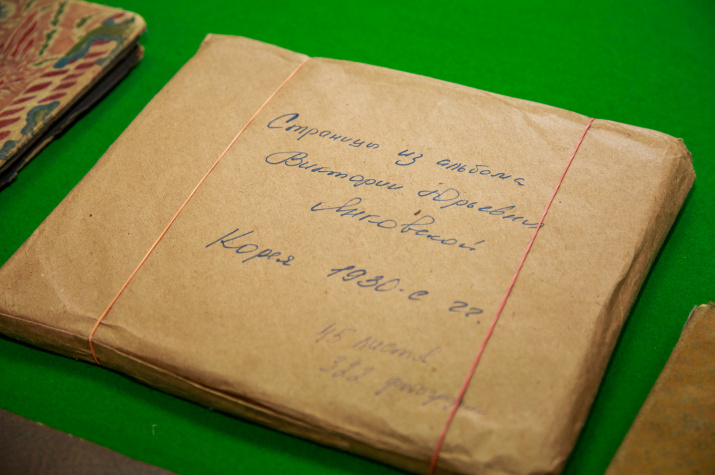 Страницы из альбома
Виктории Юрьевны
Янковской
Корея 1930-е гг.
45 листов
382 фотогр